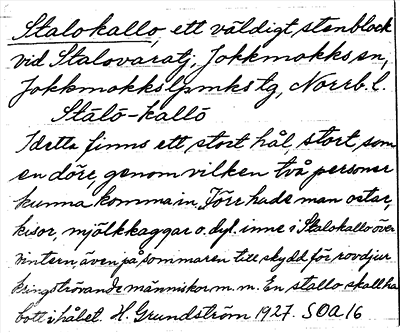 Stalokallo, ett väldigt stenblock
vid Stalovaratj, Jokkmokks sn,
Jokkmokks lpmks tg, Norrb. l.
Stálō-kallō
I detta finns ett stort hål, stort som
en dörr, genom vilken två personer
kunna komma in. Förr hade man ostar,
kisor, mjölkkaggar o. dyl. inne i Stalokallo över
vintern, även på sommaren till skydd för rovdjur
kringströvande människor m. m. En stallo skall ha
bott i hålet. H. Grundström 1927. SOA 16